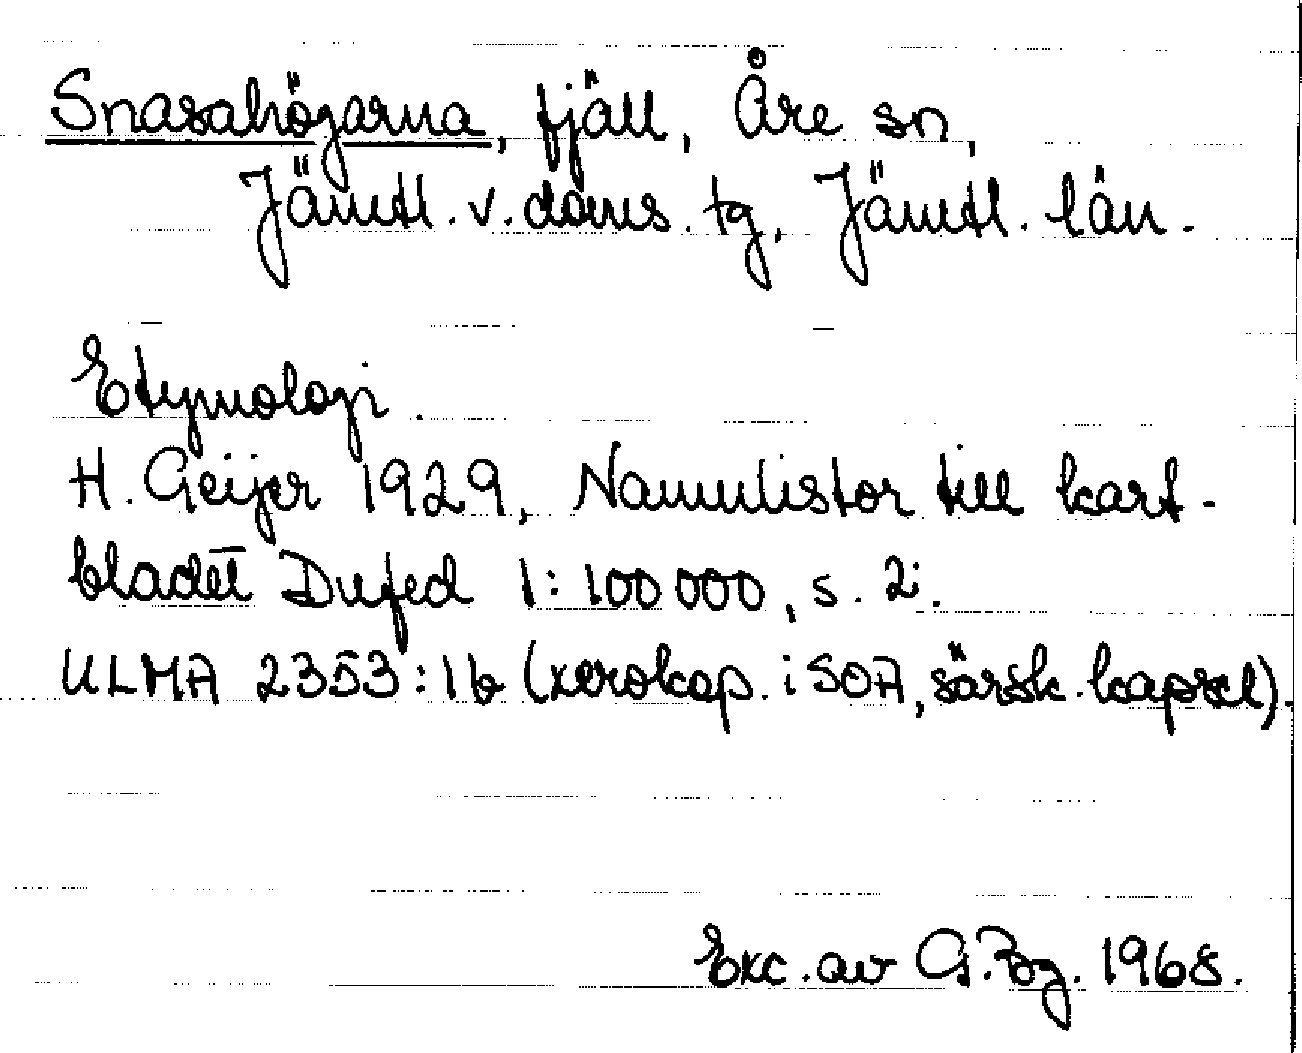 Snasahögarna, fjäll, Åre sn,
Jämtl. v. doms. tg, Jämtl. län.
Etymologi.
H. Geijer 1929, Namnlistor till kart-
bladet Dufed 1:100 000, s. 2.
ULMA 2353:16 (xerokop. i SOA, särsk. kapsel).
Exc. av G. Bg. 1968.